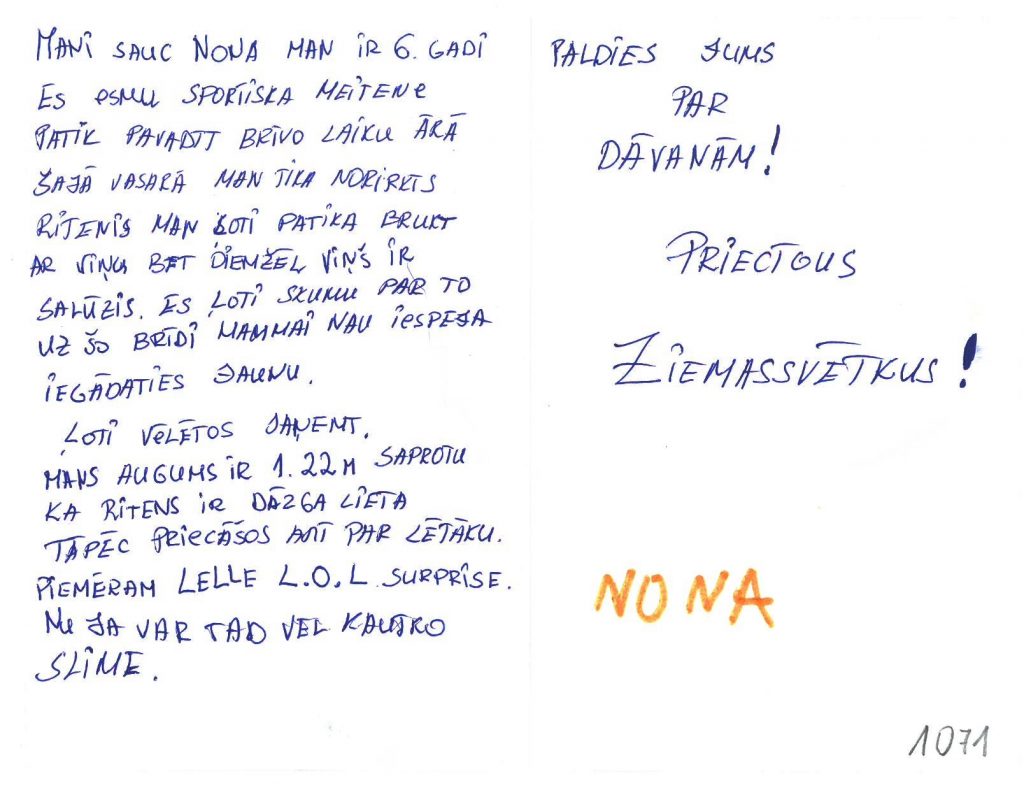 MANI SAUC NONA MAN IR 6. GADI
ES esmu SPORTISKA MEITENe
PATIK PAVADIT BRĪVO LAIKU ĀRĀ
ŠAJĀ VASARĀ MAN TIKA NOPIRKTS
RITENIS MAN ĻOTI PATIKA BRUKT
AR VIŅU BET DIEMŽĒL VIŅŠ IR
SALŪZIS. ES ĻOTI SKUMU PAR TO
UZ ŠO BRĪDI MAMMAI NAU iesPEJA
IEGĀDATIES JAUNU.
ĻOTI VeLĒTOS SAŅEMT.
MANS AUGUMS IR 1.22M SAPROTU
KA RITENS IR DĀZGA LIETA
TĀPĒC PRIECĀŠOS ARĪ PAR LĒTĀKU.
PIEMĒRAM LELLE L.O.L SURPRISE.
Nu JA VAR TAD VEL KAUTKO
SLIME.
PALDIES JUMS
PAR
DĀVANĀM!
PRIECĪGUS
ZIEMASSVĒTKUS!
NONA
1071